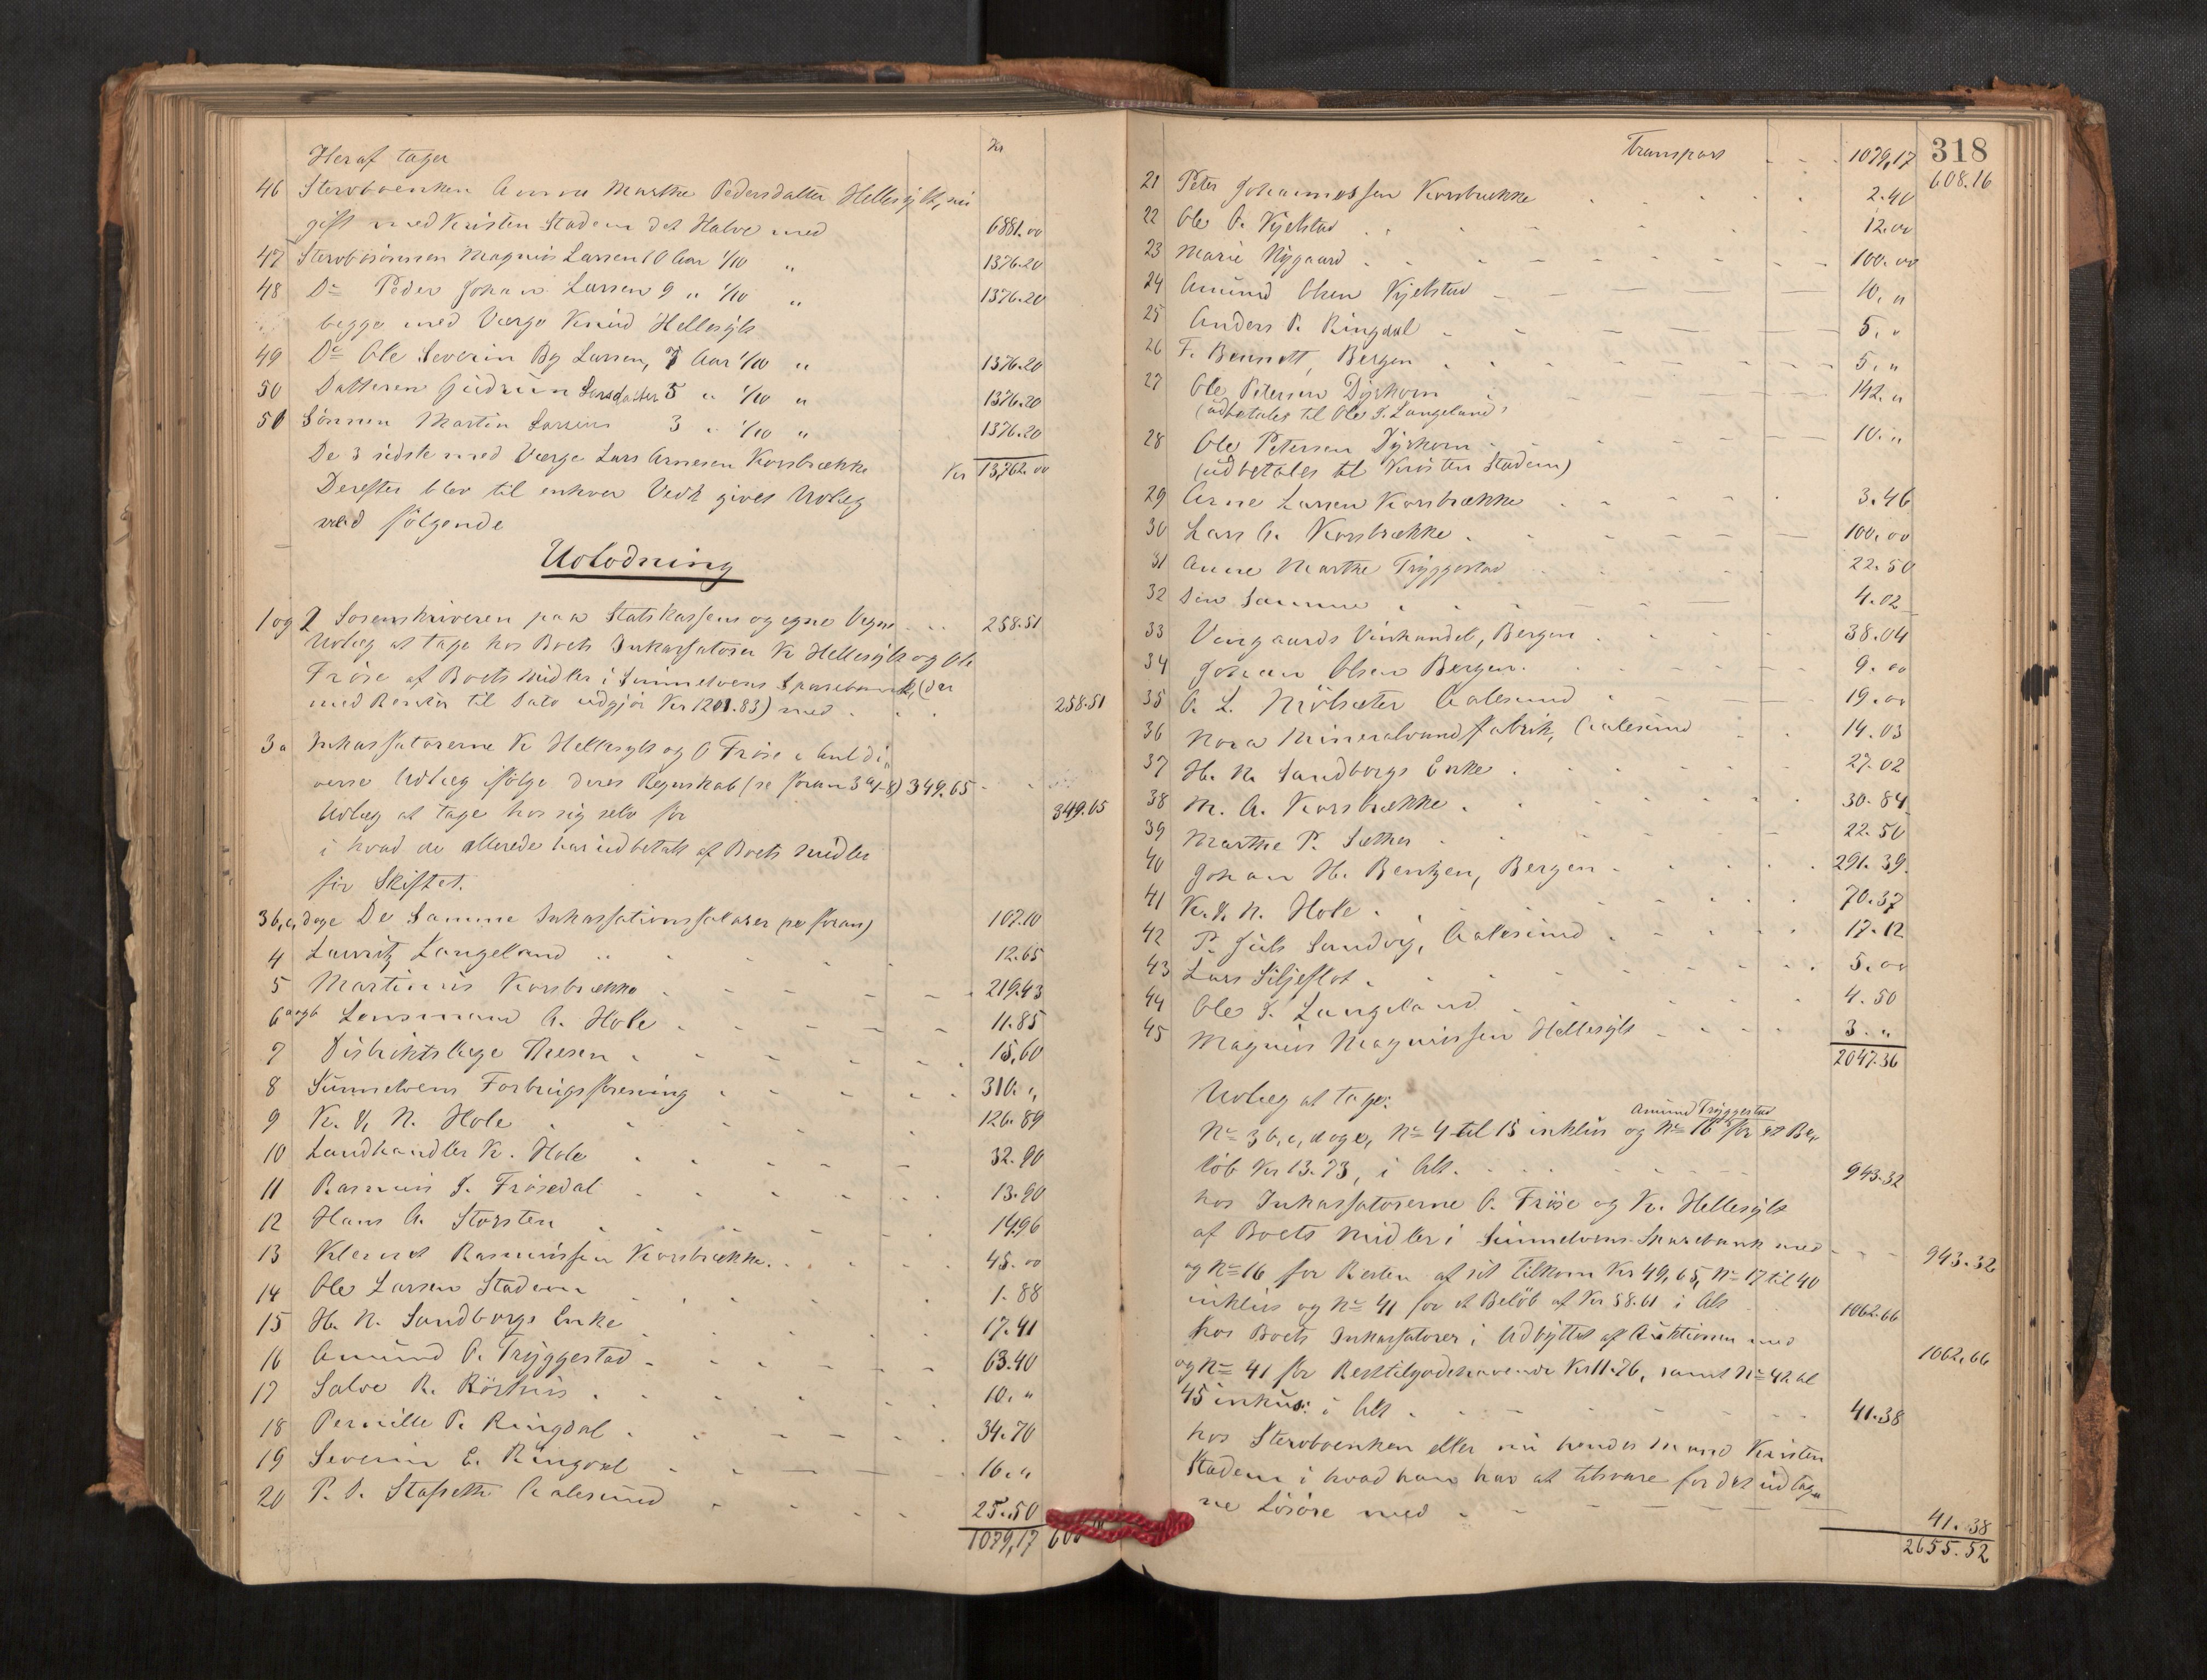 Kr
Heraf tager
46 Stervboenken Anne Marthe Pedersdatter Hellesylt, nu
gift med Kristen Stadem det Halve med 6881.00
47 Stervbosønnen Magnus Larsen 10 Aar 1/10 " 1376.20
48 Do Peder Johan Larsen 9 " 1/10 " 1376.20
begge med Værge Knud Hellesylt
49 Do Ole Severin Bg Larsen, 7 Aar 1/10 " 1376.20
50 Datteren Gudrun Larsdatter 5 " 1/10 " 1376.20
51 Sønnen Martin Larsens 3 " 1/10 " 1376.20
De 3 sidste med Værge Lars Arnesen Korsbrække Kr 13,762.00
Derefter blev til enhver Vedk givet Udlæg
ved følgende
Udlodning
1 og 2 Sorenskriveren paa Statskassens og egne Vegne 258.51
Udlæg at tage hos Boets Inkassatorer K Hellesylt og Ole
Frøse af Boets Midler i Sunnelvens Sparebank, (der
med Renter til Dato udgjør Kr 1201.83) med 258.51
3a Inkassatorerne K Hellesylt og O Frøse anl di-
verse Udlæg ifølge deres Regnskab (se foran 3 a 1-8) 349.65
Udlæg at tage hos sig selv for 349.65
i hvad de allerede har udbetalt af Boets Midler
før Skiftet.
3b, c, d og e De Samme Inkassationssalærer (se foran) 107.10
4 Lauritz Langeland 12.65
5 Martinus Korsbrække 219.43
6 a og b Lensmand A. Hole 11.85
7 Distriktslæge Thesen 15,60
8 Sunnelvens Forbrugsforening 310. "
9 K. V. N. Hole 126.89
10 Landhandler K. Hole 32.90
11 Rasmus I. Frøsedal 13.90
12 Hans A. Storsten 14,96
13 Klemet Rasmussen Korsbrække. 45.00
14 Ole Larsen Stadem 1.88
15 H. N. Sandborgs Enke 17.41
16 Amund O. Tryggestad 63.40
17 Salve R. Rørhus 10. "
18 Pernille P. Ringdal 34.70
19 Severin E. Ringdal 16. "
20 P. O. Stafseth Aalesund 25.50
1079,17
318
Transport 1079,17 608.16
21 Peter Johannessen Korsbrække 2.40
22 Ole A. Kjelstad 12.00
23 Marie Nygaard 100.00
24 Amund Olsen Kjelstad 10. "
25 Anders P. Ringdal 5. "
26 F. Bennett, Bergen 5. "
27 Ole Petersen Dyrhorn 142. "
(udbetales til Ole I. Langeland)
28 Ole Petersen Dyrhorn 10. "
(udbetales til Kristen Stadem)
29 Arne Larsen Korsbrække 3.46
30 Lars A. Korsbrække 100,00
31 Anne Marthe Tryggestad 22.50
32 Den Samme 4.02
33 Vingaards Vinhandel, Bergen 38.04
34 Johan Olsen Bergen. 9.00
35 O. L. Mølsæter Aalesund 19.00
36 Nora Mineralvandfabrik, Aalesund 14.03
37 H. N. Sandborgs Enke 27.02
38 M. A. Korsbrække 30.84
39 Marthe P. Sæther 22.50
40 Johan H. Bentzen, Bergen 291.39.
41 K. V. N. Hole 70.37
42 P. Juls Sandvig, Aalesund 17.12
43 Lars Siljeflot 5.00
44 Ole I. Langeland 4.50
45 Magnus Magnussen Hellesylt 3. "
2047.36
Udlæg at tage:
Amund Tryggestad
No 3 b, c, d og e, No 4 til 15 inklus og No 16 for et Be-
løb Kr 13.73, i Alt. 943.32
hos Inkassatorerne O. Frøse og K. Hellesylt
af Boets Midler i Sunnelvens Sparebank med 943.32
og No 16 for Resten af sit Tilkom Kr 49,65, No 17 til 40
inklus og No 41 for et Beløb af Kr 58.61 i Alt 1062.66
hos Boets Inkassatorer i Udbyttet af Auktionen med 1062,66
og No 41 for Resttilgodehavende Kr 11.76, samt No 42 til
45 inklus: i Alt 41.38
hos Stervboenken eller nu hendes Mand Kristen
Stadem i hvad han har at tilsvare for det udtag-
ne Løsøre med 41.38
2655.52